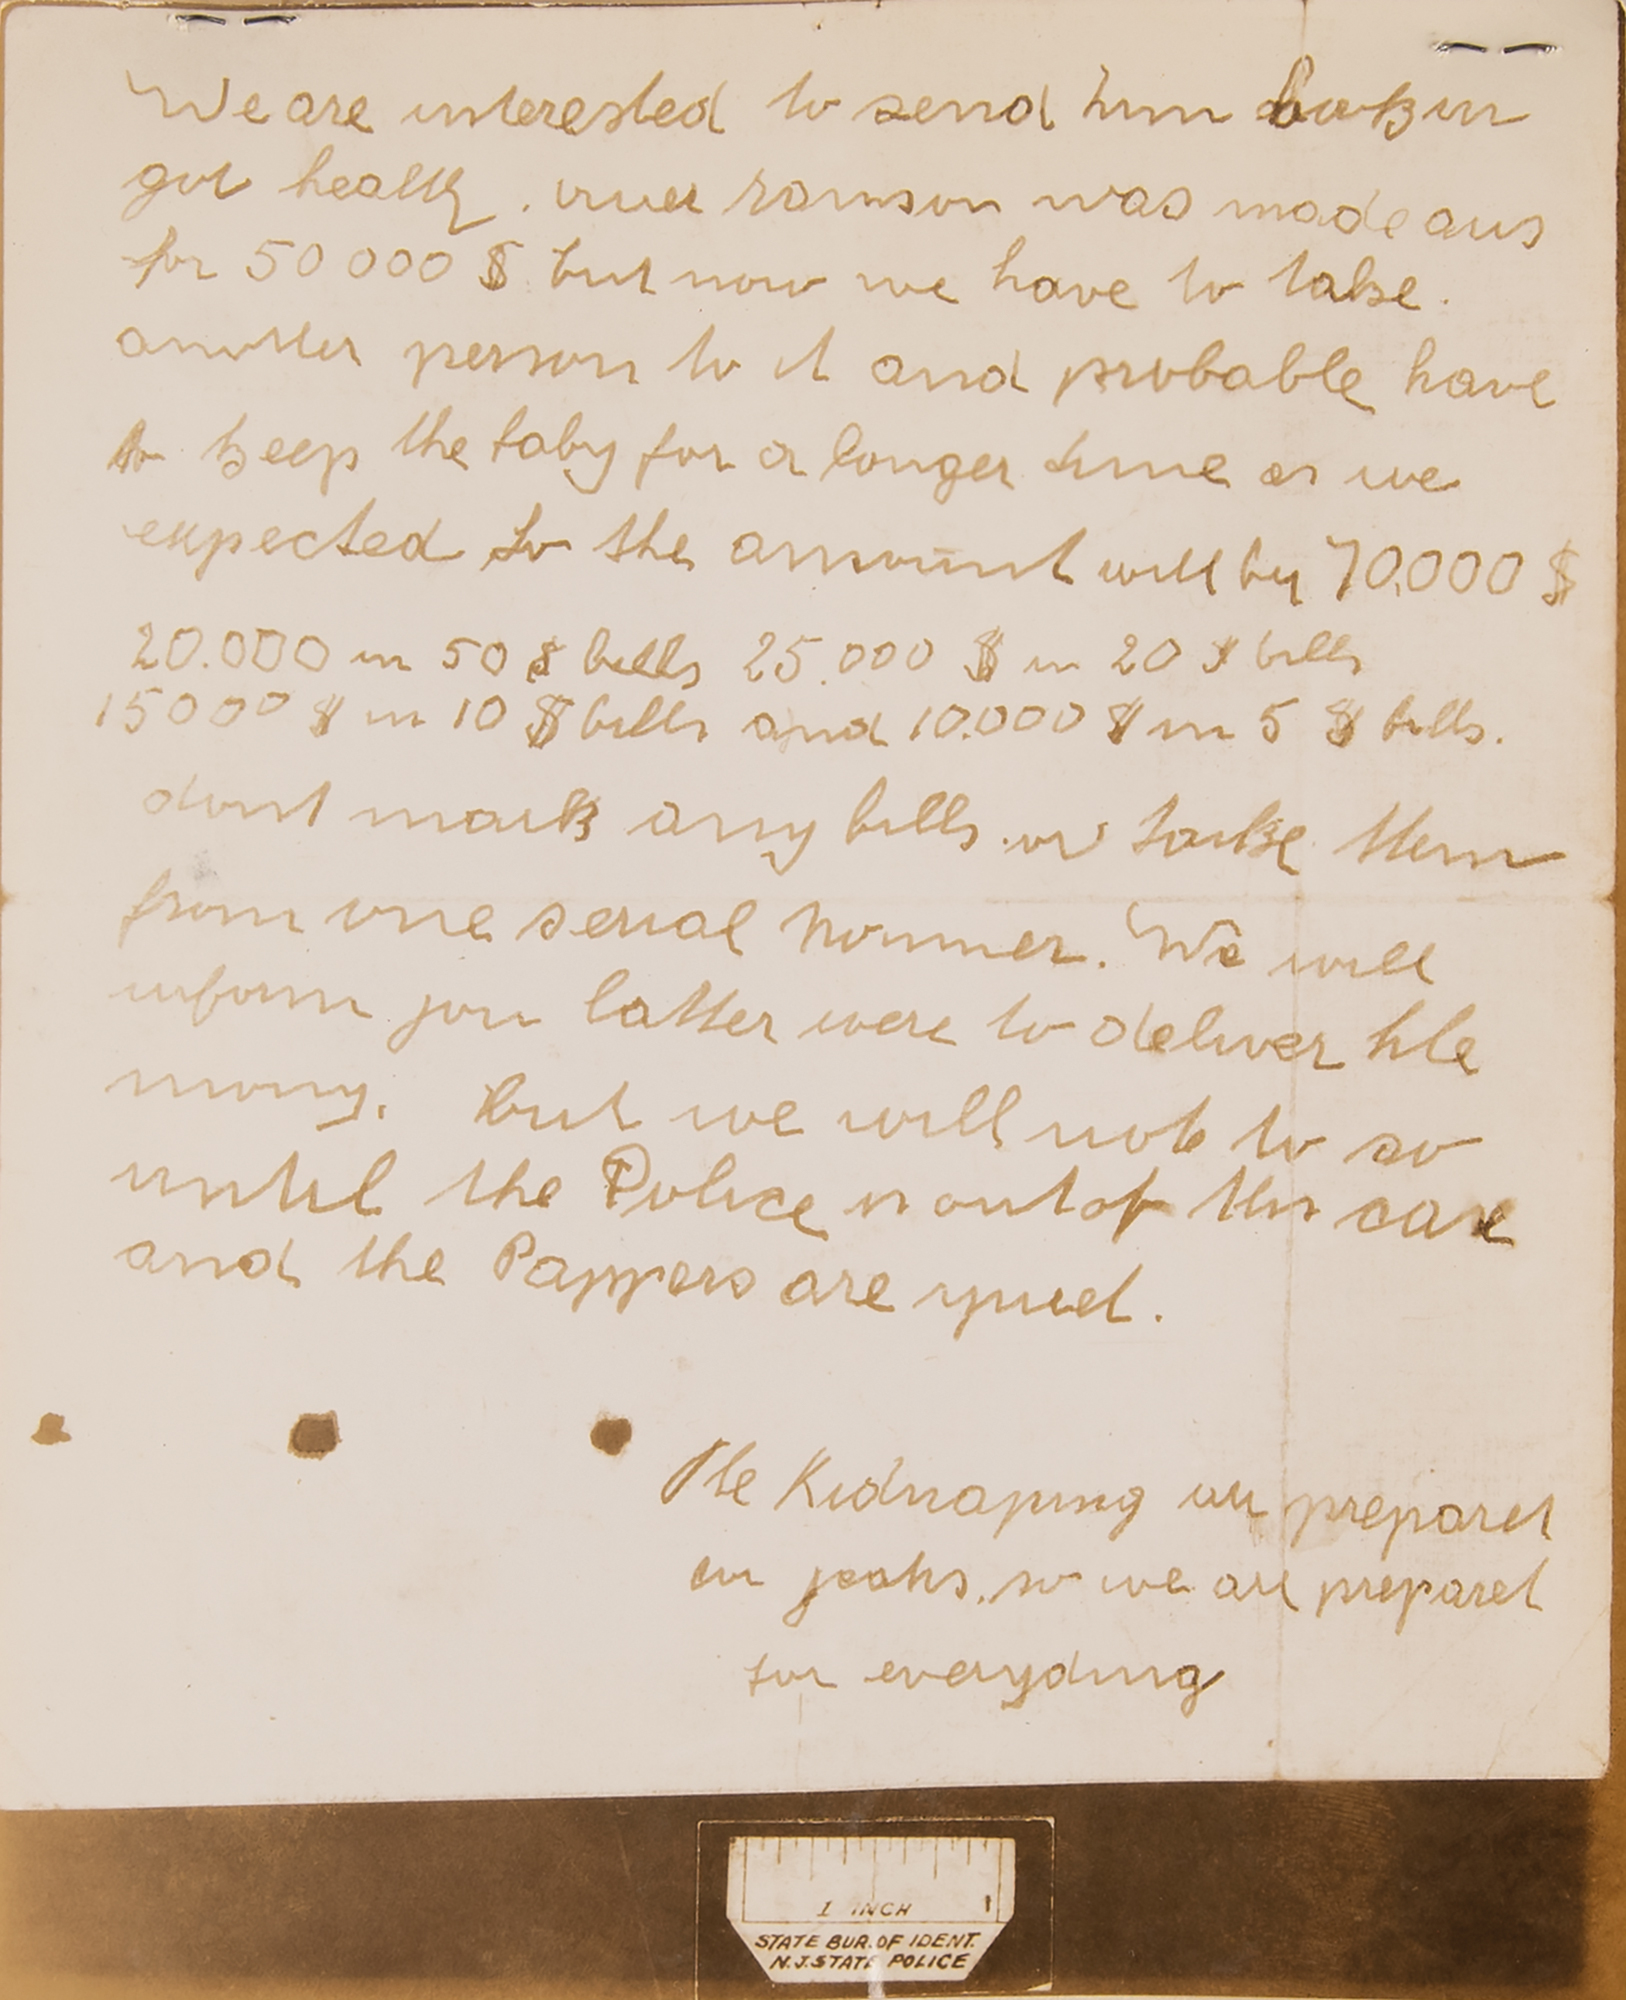 We are interested to send him back in
gut health. ouer ransom was made aus
for 50 000 $ but now we have to take
another person to it and probable have
to keep the baby for a longer time as we
expected So the amount will by 70.000 $
20.000 in 50 $ bills 25.000 $ in 20 $ bills
15000 $ in 10 $ bills and 10.000 $ in 5 $ bills.
dont mark any bills. or tacke them
from one serial nommer. We will
inform you latter were to deliver the
mony. but we will note to so
until the Police is out of ths case
and the Pappers are qute.
The Kidnaping was preparet
for yeahs. so we are preparet
for everyding
1 INCH
STATE BUR. OF IDENT.
N.J. STATE POLICE